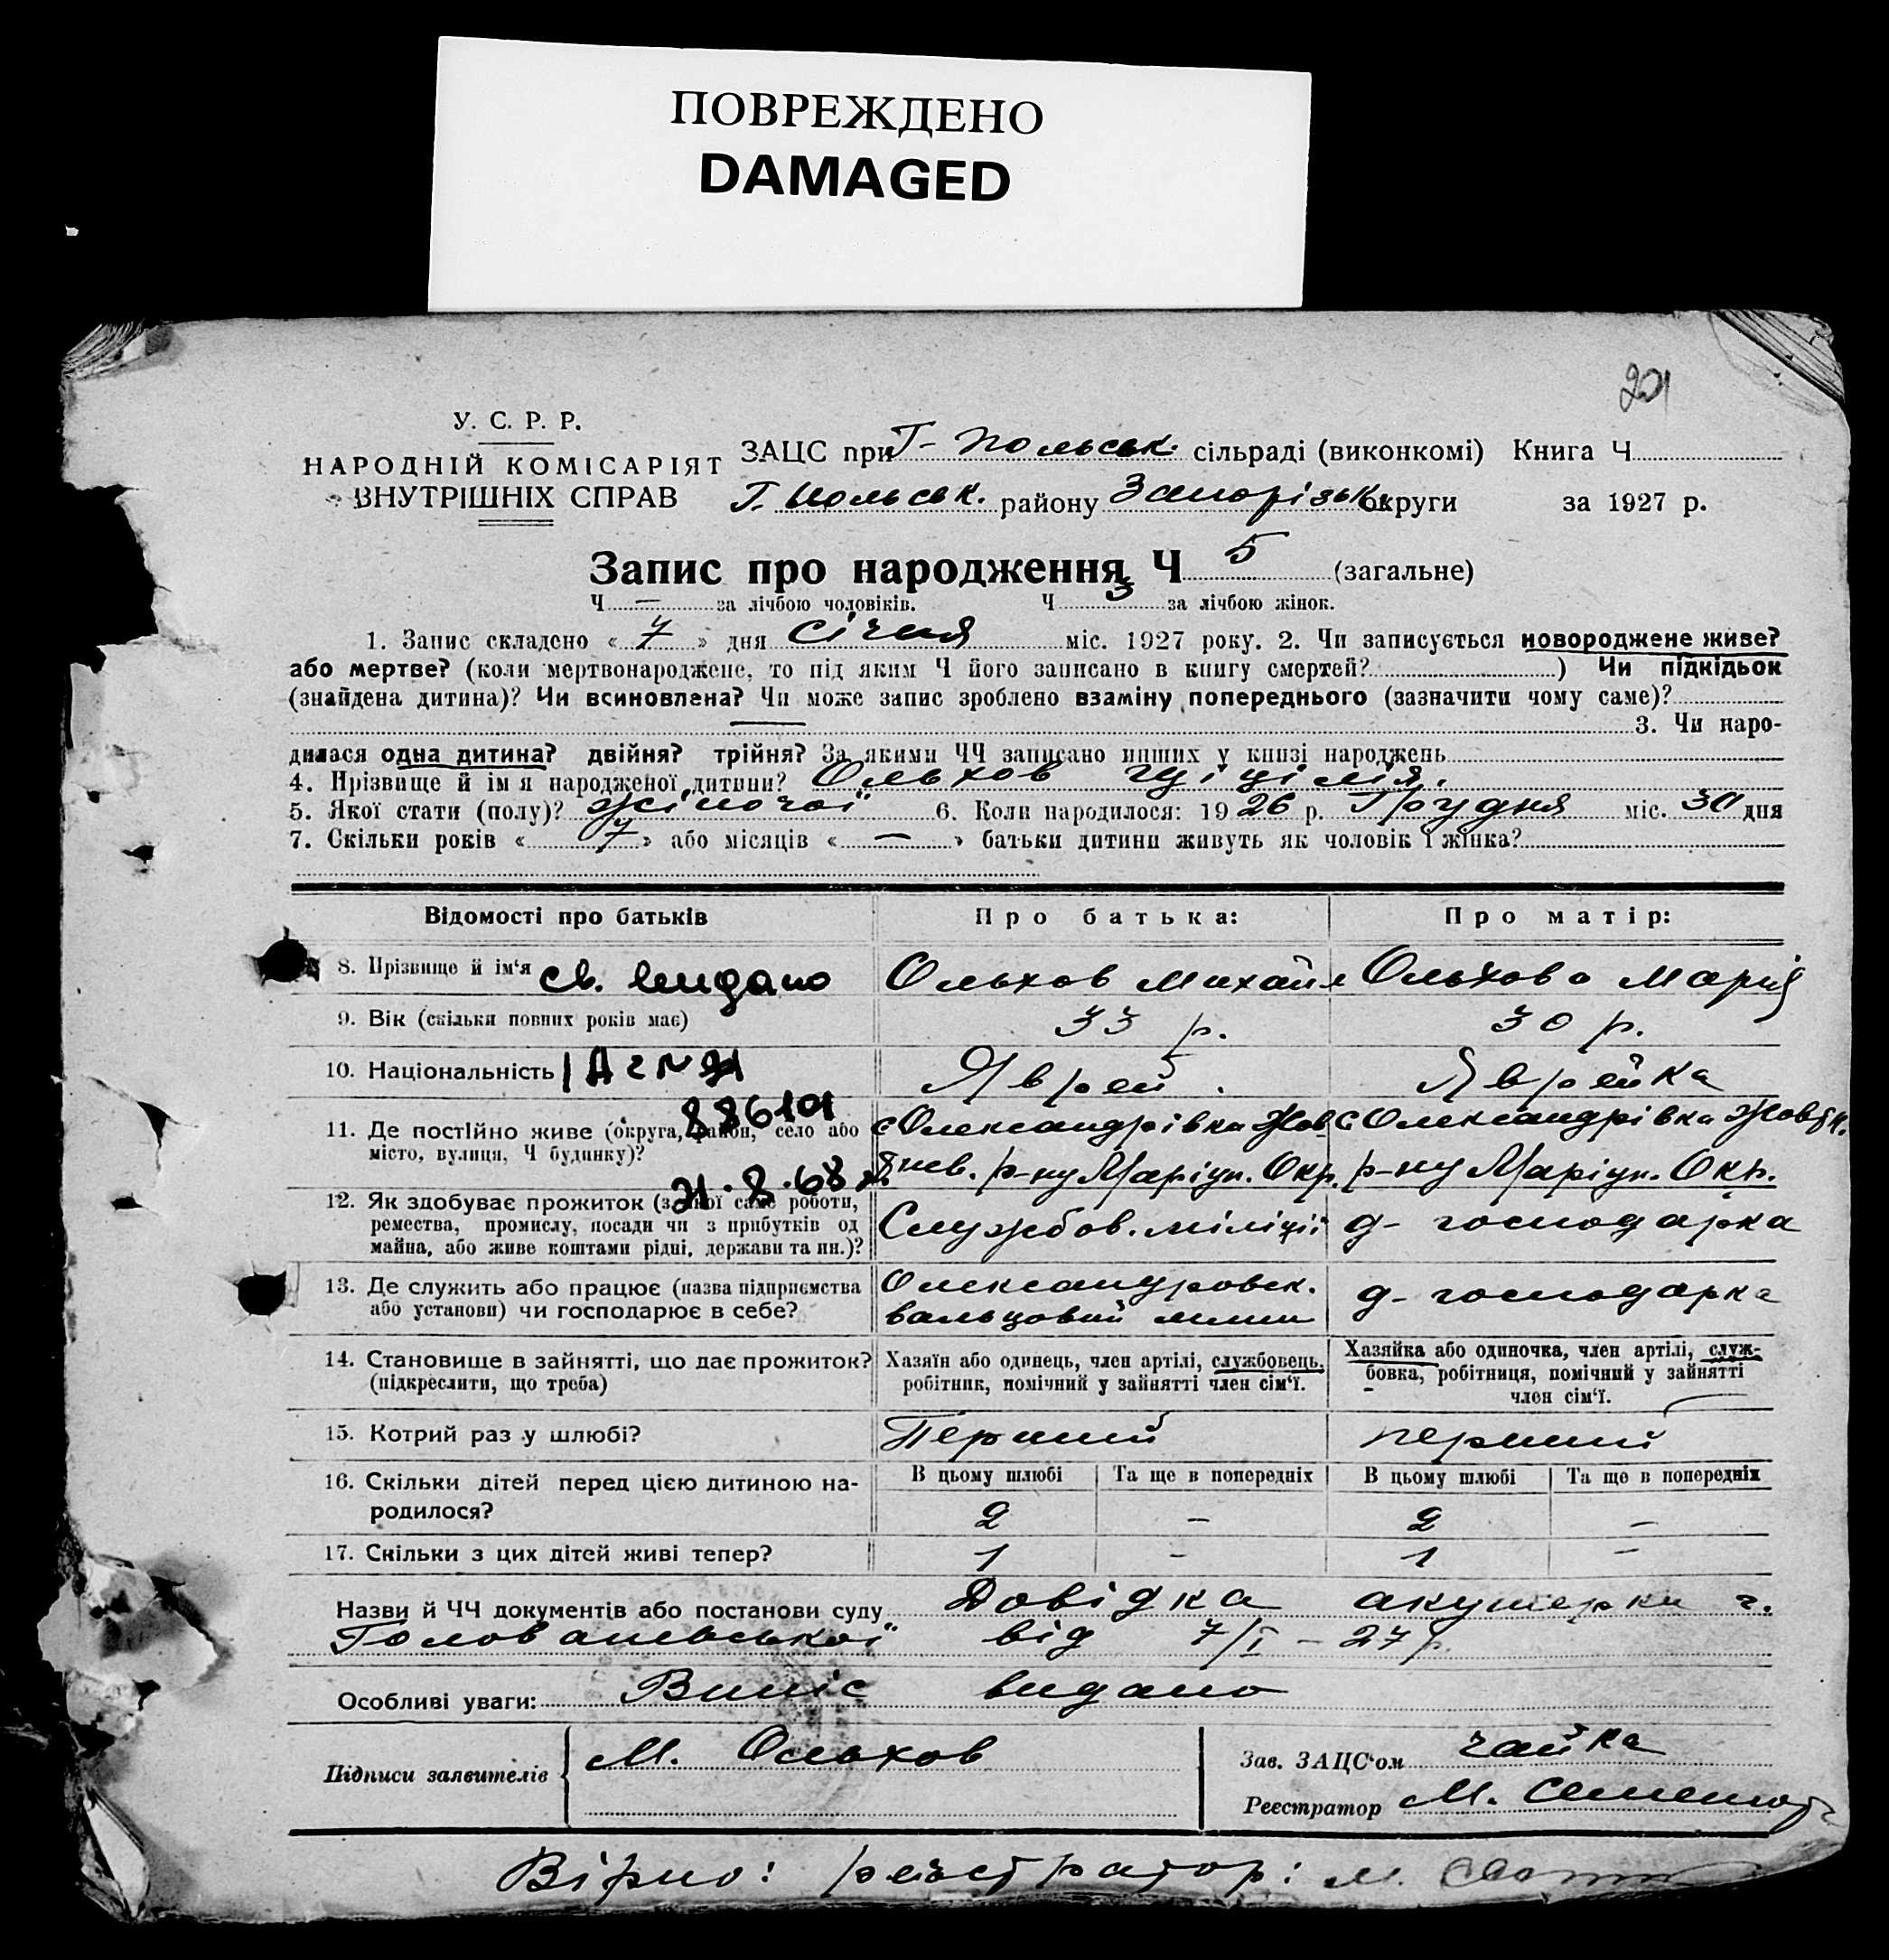 ПОВРЕЖДЕНО
DAMAGED
201
У. С. Р. Р.
НАРОДНІЙ КОМІСАРІЯТ
ВНУТРІШНІХ СПРАВ
ЗАЦС при Г-Польськ. сільраді (виконкомі) Книга Ч
Г. Польськ. району Запорізьк. округи за 1927 р.
Запис про народження Ч 5 (загальне)
Ч — за лічбою чоловіків. Ч 3 за лічбою жінок.
1. Запис складено « 7 » дня січня міс. 1927 року. 2. Чи записується новороджене живе?
або мертве? (коли мертвонароджене, то під яким Ч його записано в книгу смертей? ) Чи підкідьок
(знайдена дитина)? Чи всиновлена? Чи може запис зроблено взаміну попереднього (зазначити чому саме)?
— 3. Чи наро-
дилася одна дитина? двійня? трійня? За якими ЧЧ записано инших у книзі народжень
4. Прізвище й імя народженої дитини? Ольхов Цецілія.
5. Якої стати (полу)? жіночої 6. Коли народилося: 1926 р. Грудня міс. 30 дня
7. Скільки років « 7 » або місяців « — » батьки дитини живуть як чоловік і жінка?
Відомості про батьків Про батька: Про матір:
8. Прізвище й ім'я св. видано Ольхов Михайл Ольхова Марія
9. Вік (скільки повних років має) 33 р. 30 р.
10. Національність Яврей. Яврейка
886101
11. Де постійно живе (округа, район, село або
місто, вулиця, Ч будинку)?
с Олександрівка Жовтнев. р-ну Маріуп. Окр.
с Олександрівка Жовтн. р-ну Маріуп. Окр.
21.8.68
12. Як здобуває прожиток (з якої саме роботи,
ремества, промислу, посади чи з прибутків од
майна, або живе коштами рідні, держави та ин.)?
Службов. міліції д- господарка
13. Де служить або працює (назва підприємства
або установи) чи господарює в себе?
Олександровск.
вальцовий млин
д- господарка
14. Становище в зайнятті, що дає прожиток?
(підкреслити, що треба)
Хазяїн або одинець, член артілі, службовець,
робітник, помічний у зайнятті член сім'ї.
Хазяйка або одиночка, член артілі, служ-
бовка, робітниця, помічний у зайнятті
член сім'ї.
15. Котрий раз у шлюбі? Перший перший
16. Скільки дітей перед цією дитиною на-
родилося?
В цьому шлюбі Та ще в попередніх В цьому шлюбі Та ще в попередніх
2 – 2 –
17. Скільки з цих дітей живі тепер? 1 – 1 –
Назви й ЧЧ документів або постанови суду Довідка акушерки г.
Голованевської від 7/I – 27 р.
Особливі уваги: Випис видано
Підписи заявителів М. Ольхов
Зав. ЗАЦС'ом Чайка
Реєстратор М.
Вірно: реєстратор: М.